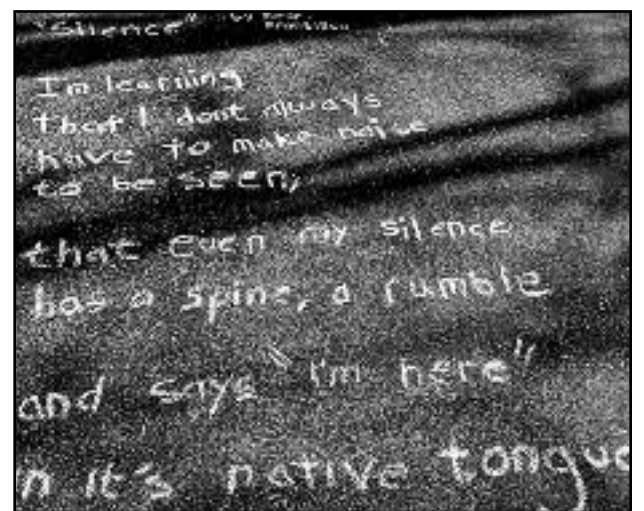 "Silence" by
Im learning
that I dont always
have to make noise
to be seen,
that even my silence
has a spine, a rumble
and says "I'm here"
n it's native tongue